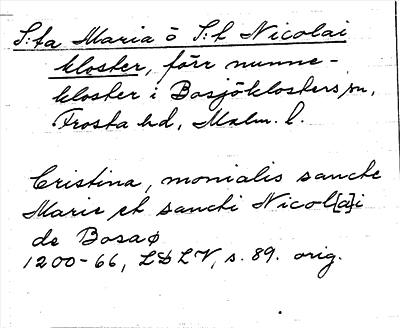 S:ta Maria o S:t Nicolai
kloster, förr nunne-
kloster i Bosjöklosters sn,
Frosta hd, Malm. l.
Cristina, monialis sancte
Marie et sancti Nicol[a]i
de Bosaø
1200-66, LDLV, s. 89. orig.